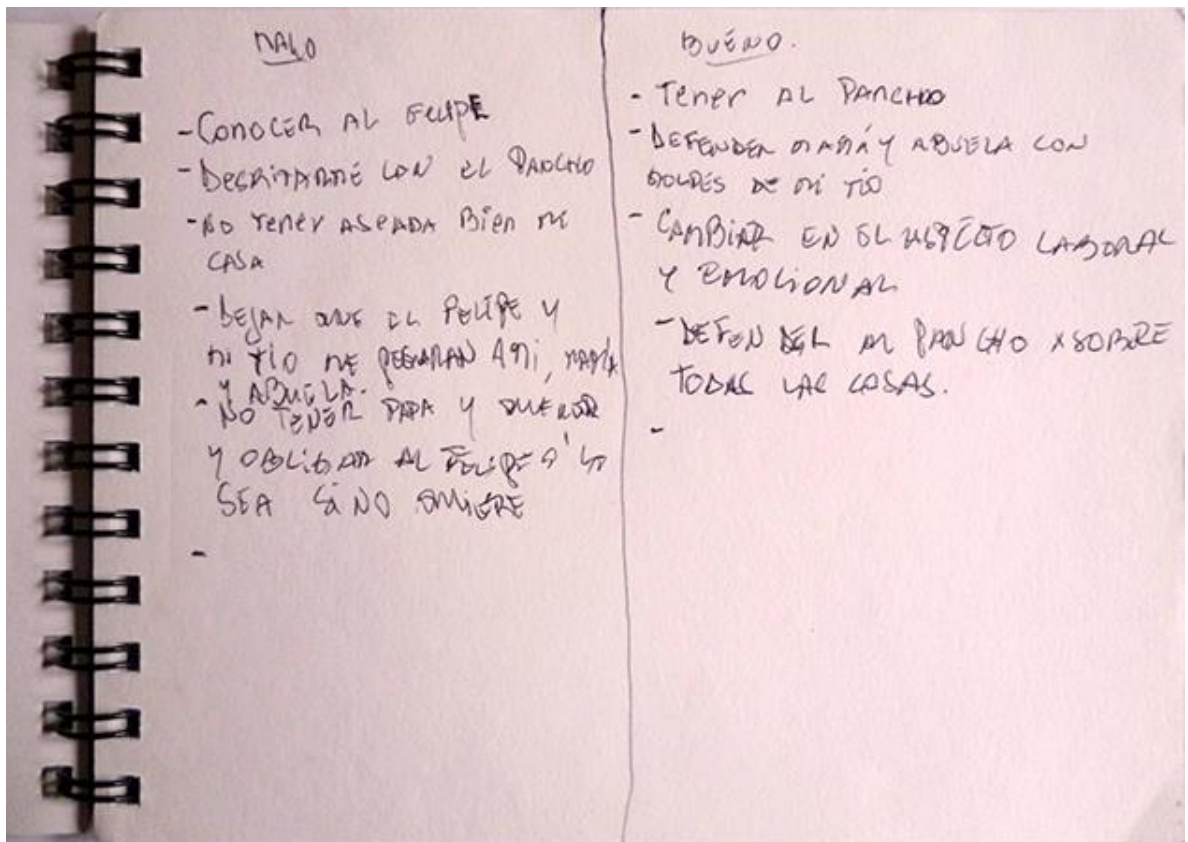 MALO
- CONOCER AL FELIPE
- DESRITARME CON EL PANCHO
- NO TENER ASEADA BIEN MI
CASA
- DEJAR QUE EL FELIPE Y
MI TIO ME PEGARAN A MI, MAMÁ
Y ABUELA.
- NO TENER PAPA Y QUERER
Y OBLIGAR AL FELIPE Q' LO
SEA SI NO QUIERE
-
BUENO.
- Tener AL PANCHO
- DEFENDER MAMÁ Y ABUELA CON
GOLPES DE MI TÍO
- CAMBIAR EN EL ASPECTO LABORAL
Y EMOCIONAL
- DEFENDER AL PANCHO X SOBRE
TODAS LAS COSAS.
-